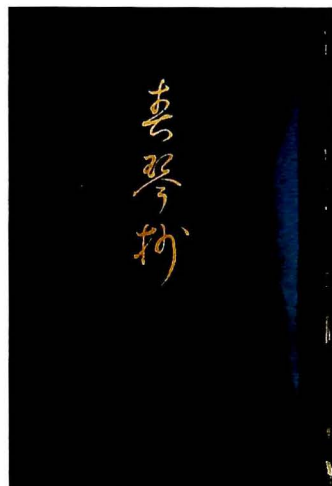 春琴抄